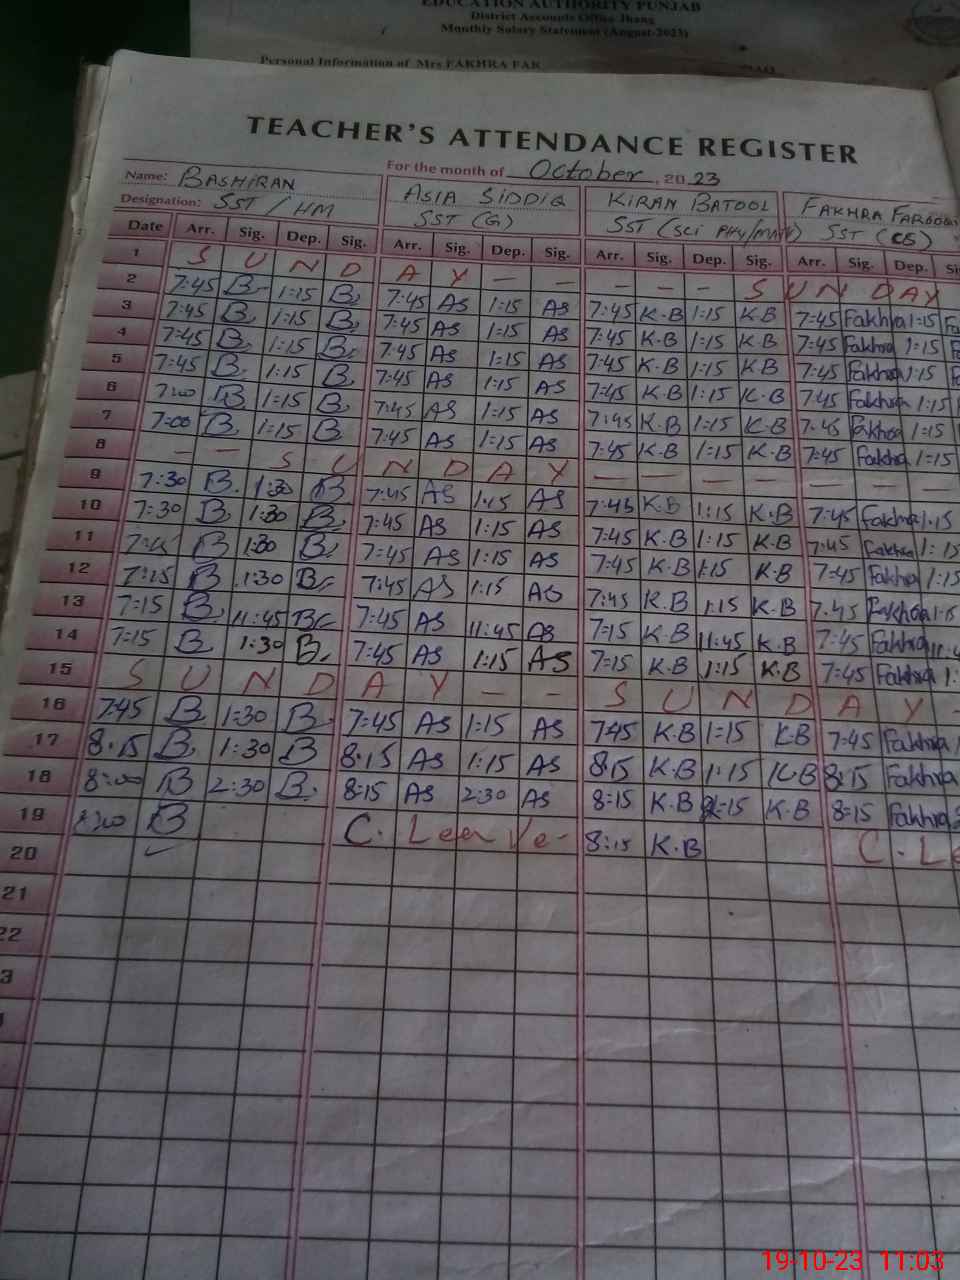 EDUCATION AUTHORITY PUNJAB
District Accounts Office Jhang
Monthly Salary Statement (August-2023)
Personal Information of Mrs FAKHRA FAR
TEACHER'S ATTENDANCE REGISTER
For the month of October, 2023
Name: BASHIRAN ASIA SIDDIQ KIRAN BATOOL FAKHRA FAROOQ
Designation: SST / HM SST (G) SST (SCI PHY/MATH) SST (CS)
Date Arr. Sig. Dep. Sig. Arr. Sig. Dep. Sig. Arr. Sig. Dep. Sig. Arr. Sig. Dep.
1 S U N D A Y — — — — — S U N D A Y
2 7:45 B 1:15 B 7:45 AS 1:15 AS 7:45 K.B 1:15 K.B 7:45 Fakhra 1:15
3 7:45 B 1:15 B 7:45 AS 1:15 AS 7:45 K.B 1:15 K.B 7:45 Fakhra 1:15
4 7:45 B 1:15 B 7:45 AS 1:15 AS 7:45 K.B 1:15 K.B 7:45 Fakhra 1:15
5 7:45 B 1:15 B 7:45 AS 1:15 AS 7:45 K.B 1:15 K.B 7:45 Fakhra 1:15
6 7:00 B 1:15 B 7:45 AS 1:15 AS 7:45 K.B 1:15 K.B 7:45 Fakhra 1:15
7 7:00 B 1:15 B 7:45 AS 1:15 AS 7:45 K.B 1:15 K.B 7:45 Fakhra 1:15
8 — — S U N D A Y — — — — — — —
9 7:30 B 1:30 B 7:45 AS 1:15 AS 7:45 K.B 1:15 K.B 7:45 Fakhra 1:15
10 7:30 B 1:30 B 7:45 AS 1:15 AS 7:45 K.B 1:15 K.B 7:45 Fakhra 1:15
11 B 1:30 B 7:45 AS 1:15 AS 7:45 K.B 1:15 K.B 7:45 Fakhra 1:15
12 7:15 B 1:30 B 7:45 AS 1:15 AS 7:45 K.B 1:15 K.B 7:45 Fakhra 1:15
13 7:15 B 11:45 B 7:45 AS 11:45 AS 7:15 K.B 11:45 K.B 7:45 Fakhra
14 7:15 B 1:30 B 7:45 AS 1:15 AS 7:15 K.B 1:15 K.B 7:45 Fakhra
15 S U N D A Y — — S U N D A Y
16 7:45 B 1:30 B 7:45 AS 1:15 AS 7:45 K.B 1:15 K.B 7:45 Fakhra
17 8:15 B 1:30 B 8:15 AS 1:15 AS 8:15 K.B 1:15 K.B 8:15 Fakhra
18 8:00 B 2:30 B 8:15 AS 2:30 AS 8:15 K.B K.B 8:15 Fakhra
19 B C. Leave 8:15 K.B C. Le
20
21
22
3
19-10-23 11:03